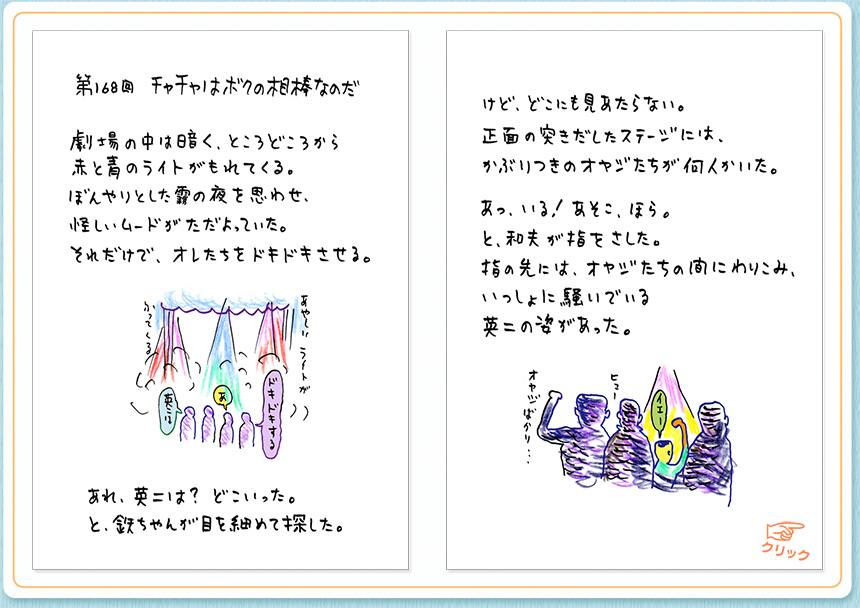 第168回 チャチャはボクの相棒なのだ
劇場の中は暗く、ところどころから
赤と青のライトがもれてくる。
ぼんやりとした霧の夜を思わせ、
怪しいムードがただよっていた。
それだけで、オレたちをドキドキさせる。
あやしいライトが
ふってくる
英二は
あ
ドキドキする
あれ、英二は? どこいった。
と、鉄ちゃんが目を細めて探した。
けど、どこにも見あたらない。
正面の突きだしたステージには、
かぶりつきのオヤジたちが何人かいた。
あっ、いる! あそこ、ほら。
と、和夫が指をさした。
指の先には、オヤジたちの間にわりこみ、
いっしょに騒いでいる
英二の姿があった。
オヤジばかり・・・
ヒュー
イエー
クリック